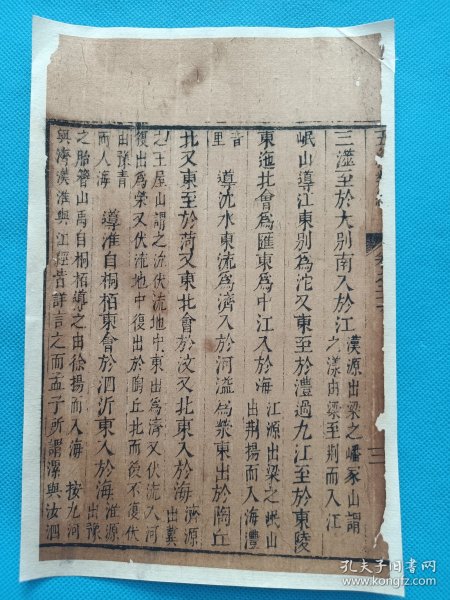 三澨至於大別南入於江
漢源出梁之嶓冢山謂
之漾由梁至荆而入江
岷山導江東別爲沱又東至於澧過九江至於東陵
東迤北會爲匯東爲中江入於海
江源出梁之岷山
出荆揚而入海澧
音
里
導沇水東流爲濟入於河溢爲滎東出於陶丘
北又東至於菏又東北會於汶又北東入於海
濟源
出冀
之王屋山謂之沇伏流地中東出爲濟又伏流入河
復出爲滎又伏流地中復出於陶丘北而後不復伏
由豫青
而入海
導淮自桐栢東會於泗沂東入於海
淮源
出豫
之胎簪山禹自桐栢導之由徐揚而入海 按九河
與濟漢淮與江經皆詳言之而孟子所謂漯與汝泗
三
孔夫子旧书网
www.kongfz.com